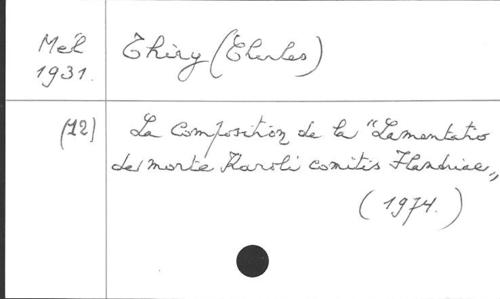 Mél
1931.
Thiry (Charles)
(12)
La Composition de la "Lamentatio
de morte Karoli comitis Flandriae„
(1974.)